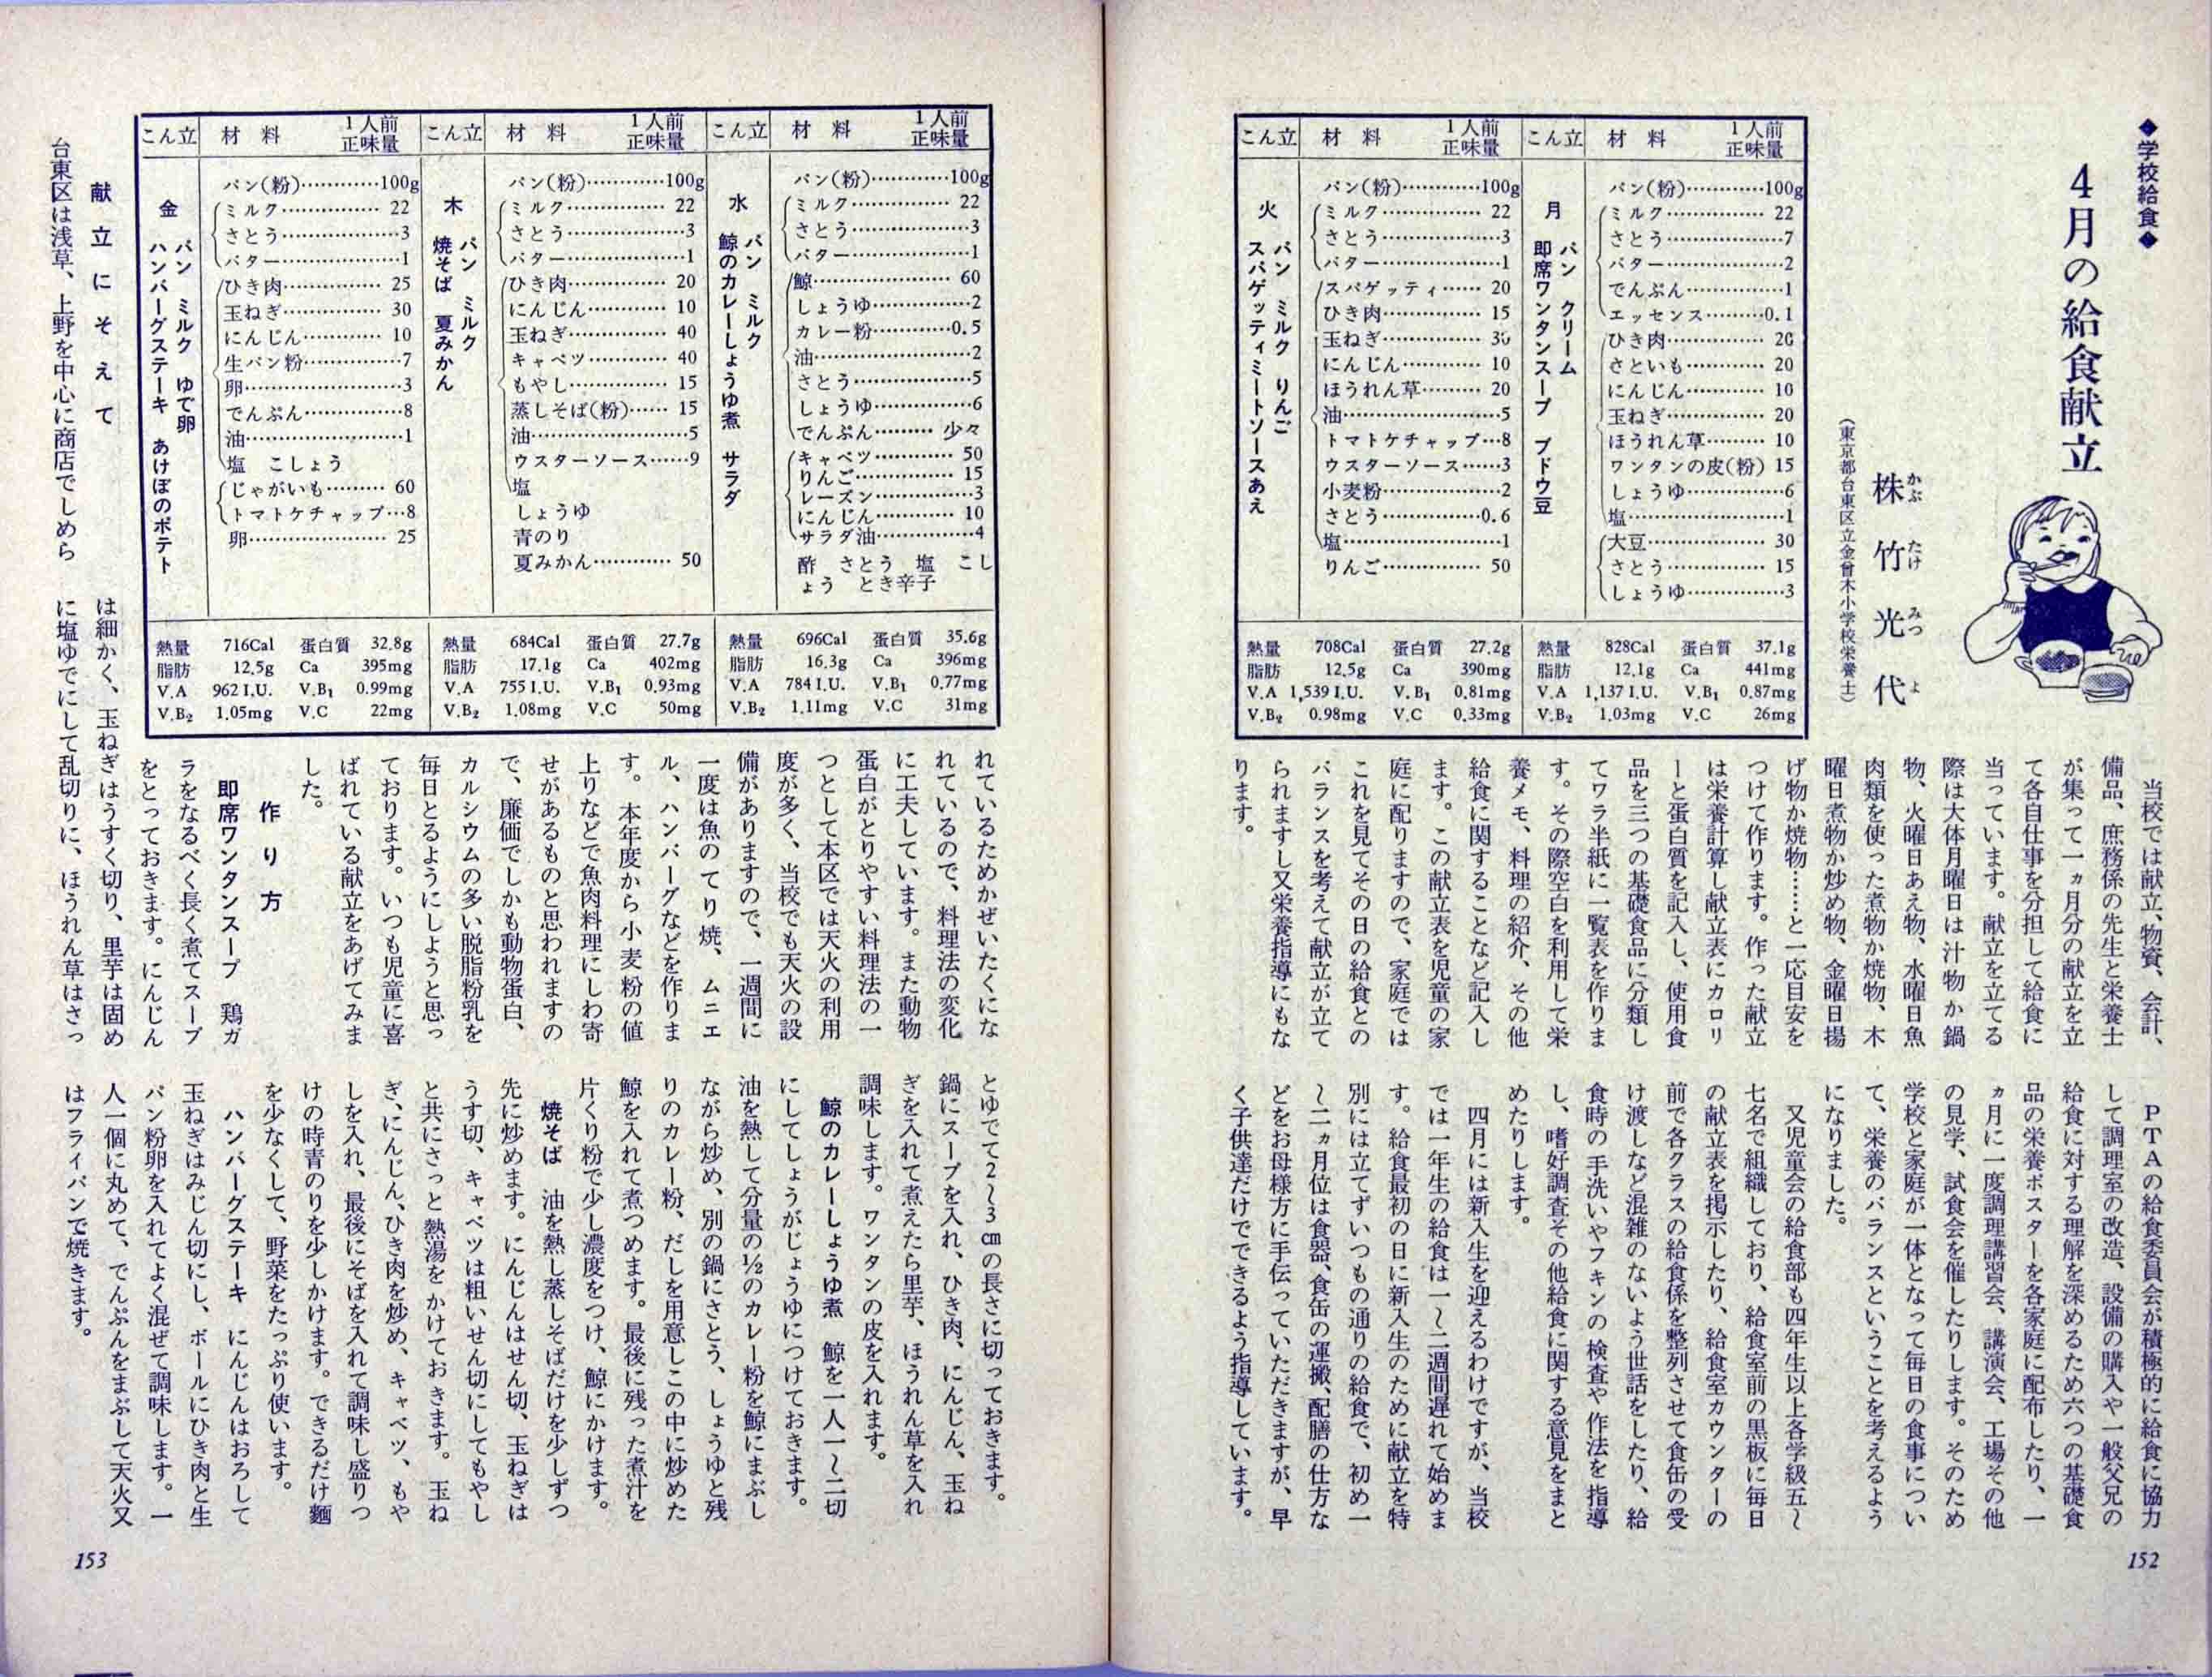 ◆学校給食◆
4月の給食献立
株竹光代
かぶ たけ みつ よ
（東京都台東区立金曾木小学校栄養士）
こん立 材料 1人前正味量
月 パン クリーム 即席ワンタンスープ ブドウ豆
パン(粉)…………100g
ミルク…………… 22
さとう……………7
バター……………2
でんぷん…………1
エッセンス………0.1
ひき肉…………… 20
さといも………… 20
にんじん………… 10
玉ねぎ…………… 20
ほうれん草……… 10
ワンタンの皮(粉) 15
しょうゆ…………6
塩…………………1
大豆……………… 30
さとう…………… 15
しょうゆ…………3
熱量 828Cal 蛋白質 37.1g
脂肪 12.1g Ca 441mg
V.A 1,137 I.U. V.B₁ 0.87mg
V.B₂ 1.03mg V.C 26mg
こん立 材料 1人前正味量
火 パン ミルク りんご スパゲッティミートソースあえ
パン(粉)…………100g
ミルク…………… 22
さとう……………3
バター……………1
スパゲッティ…… 20
ひき肉…………… 15
玉ねぎ…………… 30
にんじん………… 10
ほうれん草……… 20
油…………………5
トマトケチャップ…8
ウスターソース……3
小麦粉……………2
さとう……………0.6
塩…………………1
りんご…………… 50
熱量 708Cal 蛋白質 27.2g
脂肪 12.5g Ca 390mg
V.A 1,539 I.U. V.B₁ 0.81mg
V.B₂ 0.98mg V.C 0.33mg
当校では献立、物資、会計、
備品、庶務係の先生と栄養士
が集って一ヵ月分の献立を立
て各自仕事を分担して給食に
当っています。献立を立てる
際は大体月曜日は汁物か鍋
物、火曜日あえ物、水曜日魚
肉類を使った煮物か焼物、木
曜日煮物か炒め物、金曜日揚
げ物か焼物……と一応目安を
つけて作ります。作った献立
は栄養計算し献立表にカロリ
ーと蛋白質を記入し、使用食
品を三つの基礎食品に分類し
てワラ半紙に一覧表を作りま
す。その際空白を利用して栄
養メモ、料理の紹介、その他
給食に関することなど記入し
ます。この献立表を児童の家
庭に配りますので、家庭では
これを見てその日の給食との
バランスを考えて献立が立て
られますし又栄養指導にもな
ります。
PTAの給食委員会が積極的に給食に協力
して調理室の改造、設備の購入や一般父兄の
給食に対する理解を深めるため六つの基礎食
品の栄養ポスターを各家庭に配布したり、一
ヵ月に一度調理講習会、講演会、工場その他
の見学、試食会を催したりします。そのため
学校と家庭が一体となって毎日の食事につい
て、栄養のバランスということを考えるよう
になりました。
又児童会の給食部も四年生以上各学級五〜
七名で組織しており、給食室前の黒板に毎日
の献立表を掲示したり、給食室カウンターの
前で各クラスの給食係を整列させて食缶の受
け渡しなど混雑のないよう世話をしたり、給
食時の手洗いやフキンの検査や作法を指導
し、嗜好調査その他給食に関する意見をまと
めたりします。
四月には新入生を迎えるわけですが、当校
では一年生の給食は一〜二週間遅れて始めま
す。給食最初の日に新入生のために献立を特
別には立てずいつもの通りの給食で、初め一
〜二ヵ月位は食器、食缶の運搬、配膳の仕方な
どをお母様方に手伝っていただきますが、早
く子供達だけでできるよう指導しています。
152
こん立 材料 1人前正味量
水 パン ミルク 鯨のカレーしょうゆ煮 サラダ
パン(粉)…………100g
ミルク…………… 22
さとう……………3
バター……………1
鯨………………… 60
しょうゆ…………2
カレー粉…………0.5
油…………………2
さとう……………5
しょうゆ…………6
でんぷん……… 少々
キャベツ………… 50
りんご…………… 15
レーズン…………3
にんじん………… 10
サラダ油…………4
酢 さとう 塩 こし
ょう とき辛子
熱量 696Cal 蛋白質 35.6g
脂肪 16.3g Ca 396mg
V.A 784 I.U. V.B₁ 0.77mg
V.B₂ 1.11mg V.C 31mg
こん立 材料 1人前正味量
木 パン ミルク 焼そば 夏みかん
パン(粉)…………100g
ミルク…………… 22
さとう……………3
バター……………1
ひき肉…………… 20
にんじん………… 10
玉ねぎ…………… 40
キャベツ………… 40
もやし…………… 15
蒸しそば(粉)…… 15
油…………………5
ウスターソース……9
塩
しょうゆ
青のり
夏みかん………… 50
熱量 684Cal 蛋白質 27.7g
脂肪 17.1g Ca 402mg
V.A 755 I.U. V.B₁ 0.93mg
V.B₂ 1.08mg V.C 50mg
こん立 材料 1人前正味量
金 パン ミルク ゆで卵 ハンバーグステーキ あけぼのポテト
パン(粉)…………100g
ミルク…………… 22
さとう……………3
バター……………1
ひき肉…………… 25
玉ねぎ…………… 30
にんじん………… 10
生パン粉…………7
卵…………………3
でんぷん…………8
油…………………1
塩 こしょう
じゃがいも……… 60
トマトケチャップ…8
卵………………… 25
熱量 716Cal 蛋白質 32.8g
脂肪 12.5g Ca 395mg
V.A 962 I.U. V.B₁ 0.99mg
V.B₂ 1.05mg V.C 22mg
献立にそえて
台東区は浅草、上野を中心に商店でしめら
れているためかぜいたくにな
れているので、料理法の変化
に工夫しています。また動物
蛋白がとりやすい料理法の一
つとして本区では天火の利用
度が多く、当校でも天火の設
備がありますので、一週間に
一度は魚のてり焼、ムニエ
ル、ハンバーグなどを作りま
す。本年度から小麦粉の値
上りなどで魚肉料理にしわ寄
せがあるものと思われますの
で、廉価でしかも動物蛋白、
カルシウムの多い脱脂粉乳を
毎日とるようにしようと思っ
ております。いつも児童に喜
ばれている献立をあげてみま
した。
作り方
即席ワンタンスープ 鶏ガ
ラをなるべく長く煮てスープ
をとっておきます。にんじん
は細かく、玉ねぎはうすく切り、里芋は固め
に塩ゆでにして乱切りに、ほうれん草はさっ
とゆでて2〜3cmの長さに切っておきます。
鍋にスープを入れ、ひき肉、にんじん、玉ね
ぎを入れて煮えたら里芋、ほうれん草を入れ
調味します。ワンタンの皮を入れます。
鯨のカレーしょうゆ煮 鯨を一人一〜二切
にしてしょうがじょうゆにつけておきます。
油を熱して分量の½のカレー粉を鯨にまぶし
ながら炒め、別の鍋にさとう、しょうゆと残
りのカレー粉、だしを用意しこの中に炒めた
鯨を入れて煮つめます。最後に残った煮汁を
片くり粉で少し濃度をつけ、鯨にかけます。
焼そば 油を熱し蒸しそばだけを少しずつ
先に炒めます。にんじんはせん切、玉ねぎは
うす切、キャベツは粗いせん切にしてもやし
と共にさっと熱湯をかけておきます。玉ね
ぎ、にんじん、ひき肉を炒め、キャベツ、もや
しを入れ、最後にそばを入れて調味し盛りつ
けの時青のりを少しかけます。できるだけ麺
を少なくして、野菜をたっぷり使います。
ハンバーグステーキ にんじんはおろして
玉ねぎはみじん切にし、ボールにひき肉と生
パン粉卵を入れてよく混ぜて調味します。一
人一個に丸めて、でんぷんをまぶして天火又
はフライパンで焼きます。
153